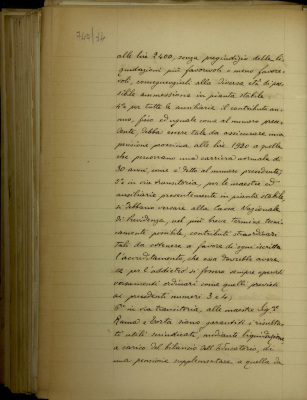 742/36
alle lire 2400, senza pregiudizio delle li-
quidazioni più favorevoli o meno favore-
voli, conseguenti alla diversa età di pos-
sibile ammissione in pianta stabile
4° per tutte le ausiliarie il contributo an-
nuo, fisso ed uguale come al numero prece-
dente, debba essere tale da assicurare una
pensione prossima alle lire 1920 a quelle
che percorrano una carriera normale di
30 anni, come è detto al numero precedente;
5° in via transitoria, per le maestre ed
ausiliarie presentemente in pianta stabile,
si debbano versare alla Cassa Nazionale
di Previdenza, nel più breve termine
possibile, contributi straordinari
tali da ottenere a favore di ogni iscritta
l'accreditamento, che essa dovrebbe avere
se per l'addietro si fossero sempre operati
versamenti ordinari come quelli previsti
ai precedenti numeri 3 e 4;
6° in via transitoria, alle maestre Sig.re
Rama e siano garantiti i
mediante liquidazione
a carico del bilancio dell'Educatorio, di
una pensione supplementare a quella da